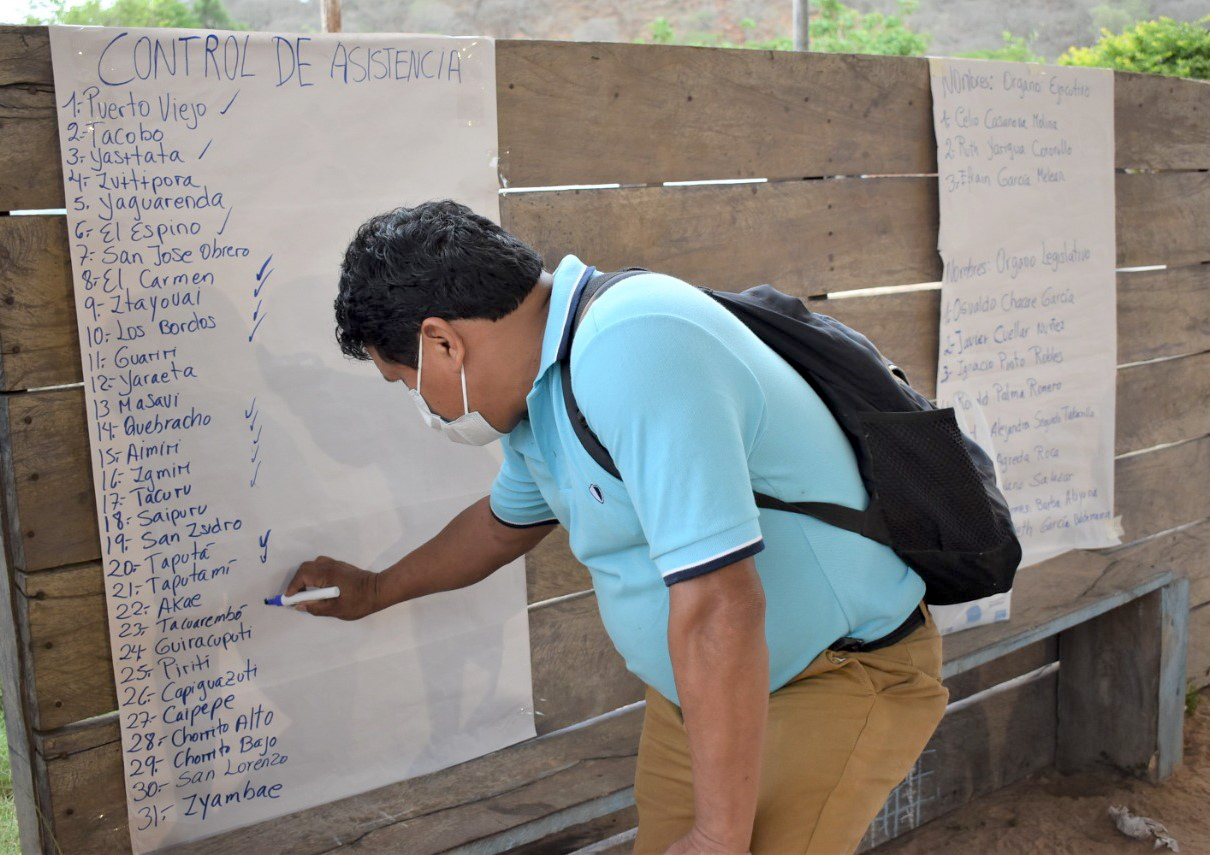 CONTROL DE ASISTENCIA
1.- Puerto Viejo ✓
2.- Tacobo
3.- Yasitata ✓
4.- Ivitipora
5. Yaguarenda
6.- El Espino ✓
7.- San Jose Obrero
8.- El Carmen ✓
9.- Itayovai ✓
10.- Los Bordos ✓
11.- Guariri
12.- Yaraeta
13 Masavi
14.- Quebracho ✓
15.- Aimiri ✓
16.- Igmiri ✓
17.- Tacuru ✓
18.- Saipuru
19.- San Isidro
20.- Taputá ✓
21.- Taputamí
22.- Akae
23.- Tacuarembó
24 Guiracuputi
25.- Piriti
26.- Capiguazuti
27.- Caipepe
28.- Chorrito Alto
29.- Chorrito Bajo
30.- San Lorenzo
31.- Iyambae
Nombres: Organo Ejecutivo
1. Celio Casanova Molina
2.- Ruth Yarigua
3.- Efrain García Melean
Nombres: Organo Legislativo
1. Osvaldo Chasse García
2.- Javier Cuellar Nuñez
3.- Ignacio Pinto Robles
Palma Romero
Alejandra Segundo
Agreda Roca
Salazar
Barba
García